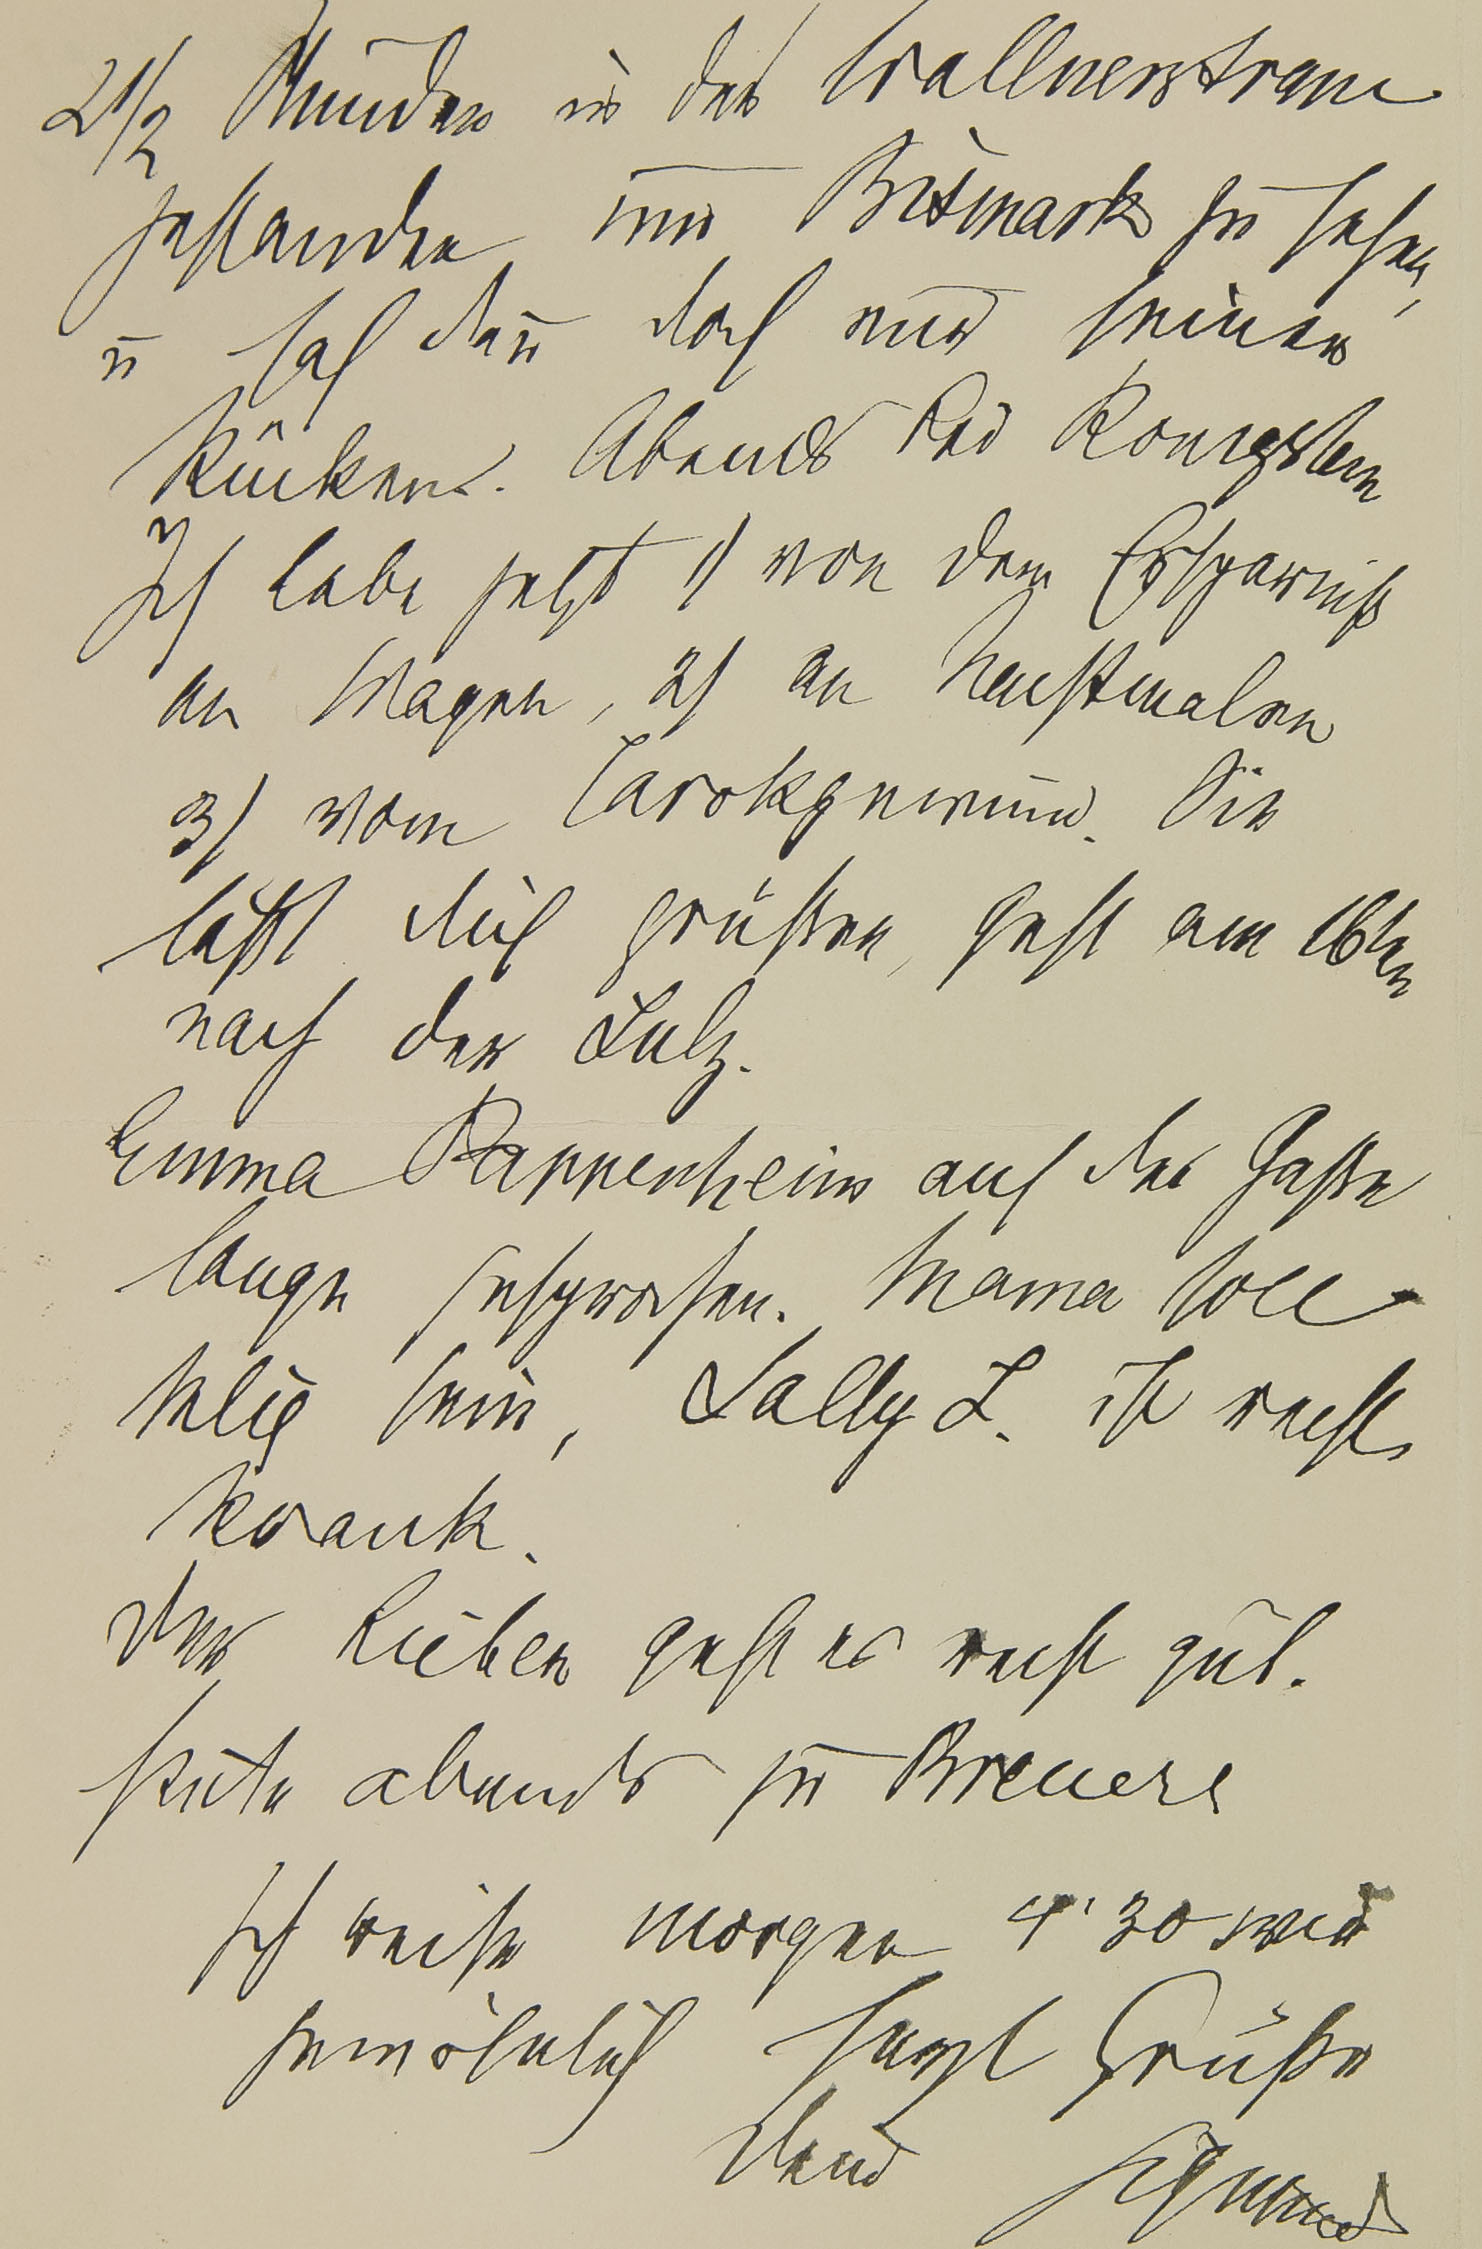 2 1/2 Stunden in der Wallnerstrasse
gestanden um Bismark zu sehen,
u sah dan̄ doch nur seinen
Rücken. Abends bei Königstein
Ich lebe jetzt 1) von dem Ersparniß
an Wagen, 2) an Nachtmalen
3) vom Tarokgewinn. Sie
läßt Dich grüßen, geht am 16ten
nach der Sulz.
Emma Pappenheim auf der Gasse
lange gesprochen. Mama soll
selig sein, Sally L. ist recht
krank.
Der Lieben geht es recht gut.
Heute abends zu Breuers
Ich reise morgen 4'30 wie
gewöhnlich herzl Grüße
Dein Sigmund